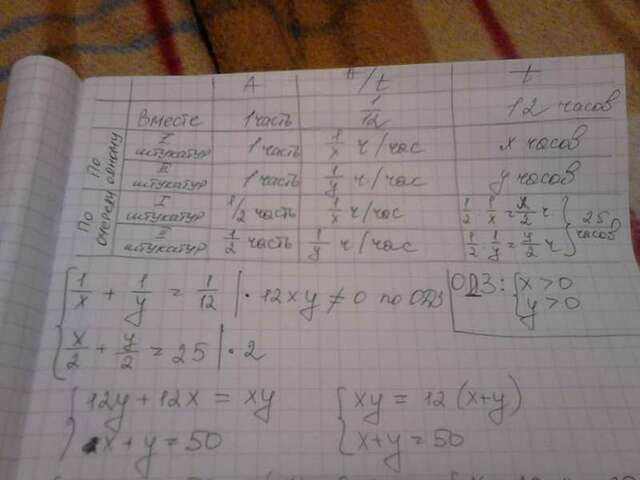 A A/t t
Вместе 1 часть 1/12 12 часов
По одному I штукатур 1 часть 1/x ч/час x часов
II штукатур 1 часть 1/y ч/час y часов
По очереди I штукатур 1/2 часть 1/x ч/час 1/2 · 1/x = x/2 ч } 25 часов
II штукатур 1/2 часть 1/y ч/час 1/2 · 1/y = y/2 ч
{ 1/x + 1/y = 1/12 | · 12xy ≠ 0 по ОДЗ
ОДЗ: { x > 0
y > 0
x/2 + y/2 = 25 | · 2
{ 12y + 12x = xy { xy = 12 (x+y)
x + y = 50 x + y = 50